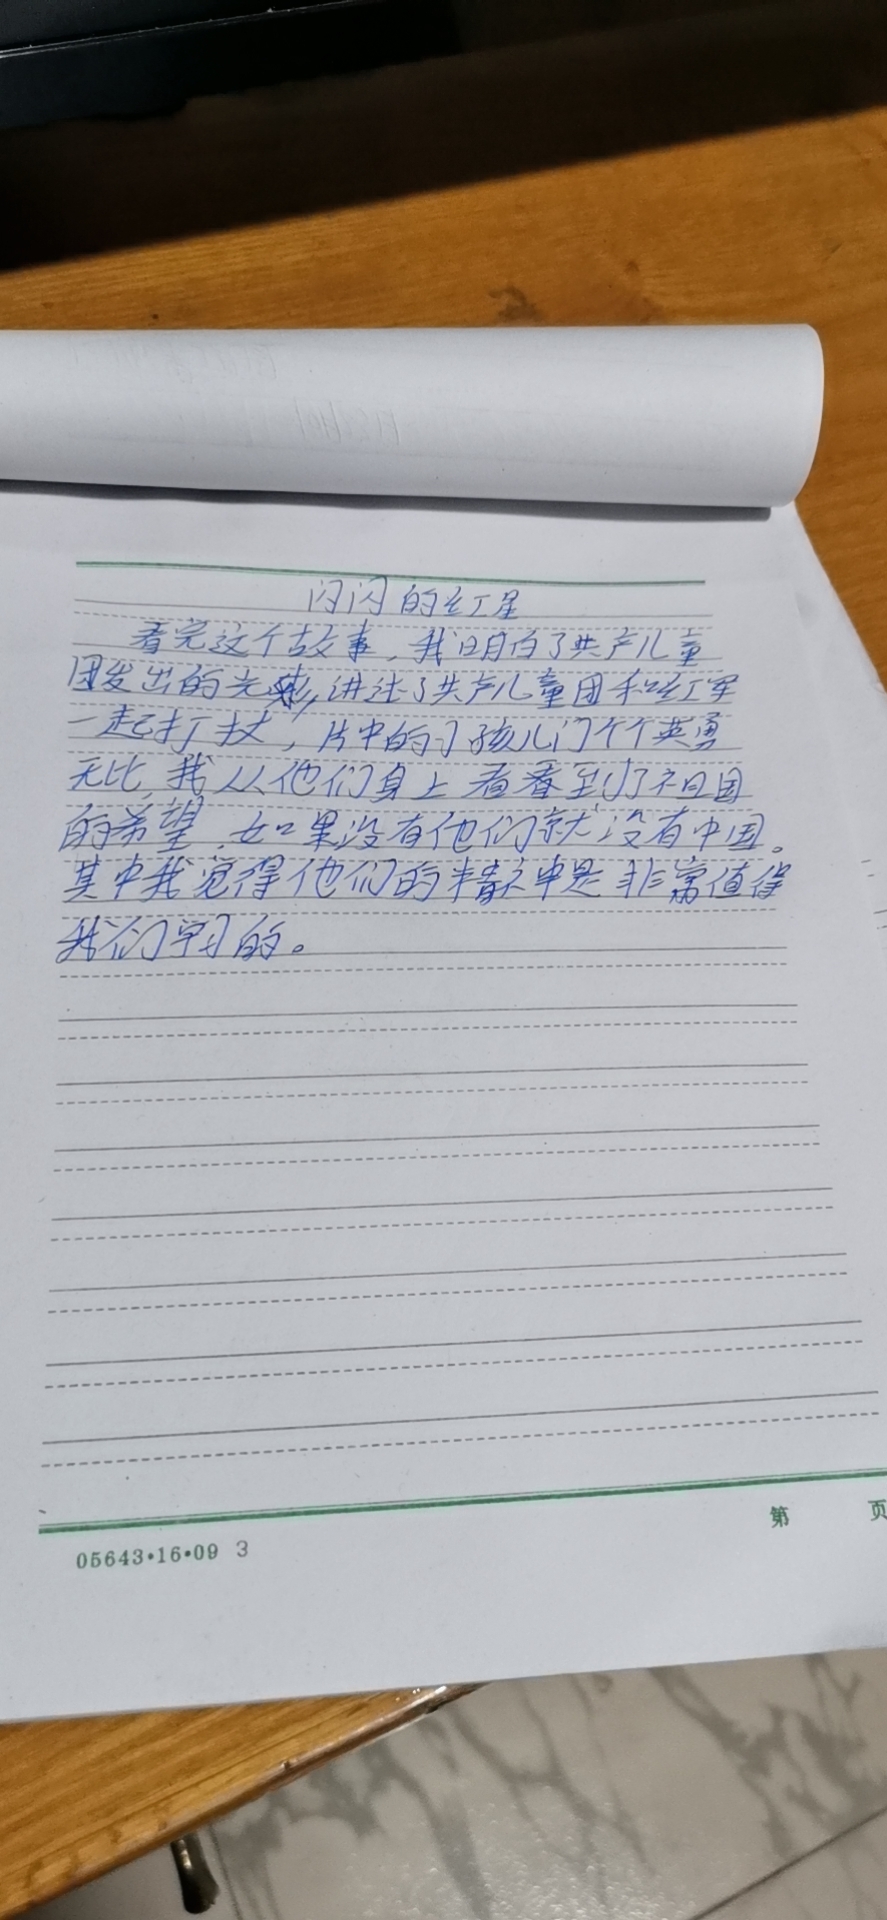 闪闪的红星
看完这个故事,我明白了共产儿童
团发出的光彩,讲述了共产儿童团和红军
一起打扙,片中的小孩儿门个个英勇
无比,我从他们身上看看到了祖国
的希望,如果没有他们就没有中国。
其中我觉得他们的精神是非常值得
我们学习的。
第 页
05643•16•09 3